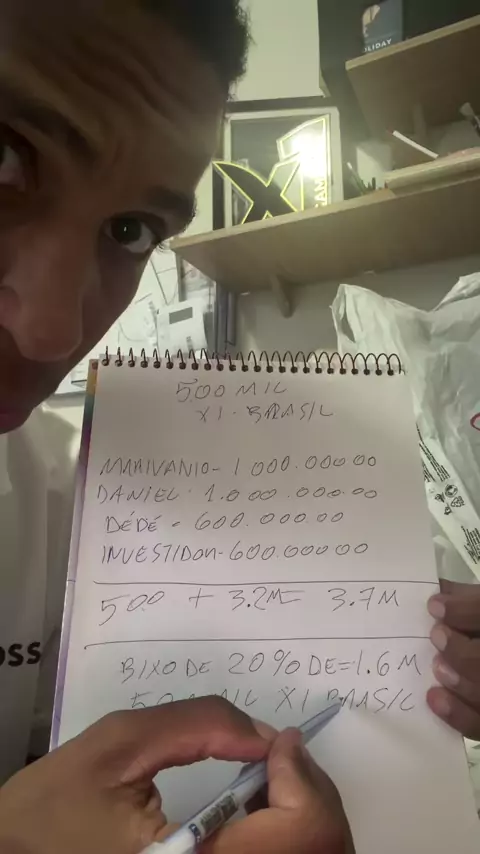 LIDAY
X1
GAM
500 MIL
X1 - BRASIL
MARIVANIO - 1 000.000 00
DANIEL - 1.000.000.00
DÉDÉ - 600.000.00
INVESTIDOR - 600.000 00
500 + 3.2M = 3.7M
BIXO DE 20% DE = 1.6 M
500 MIL X1 BRASIL
OSS